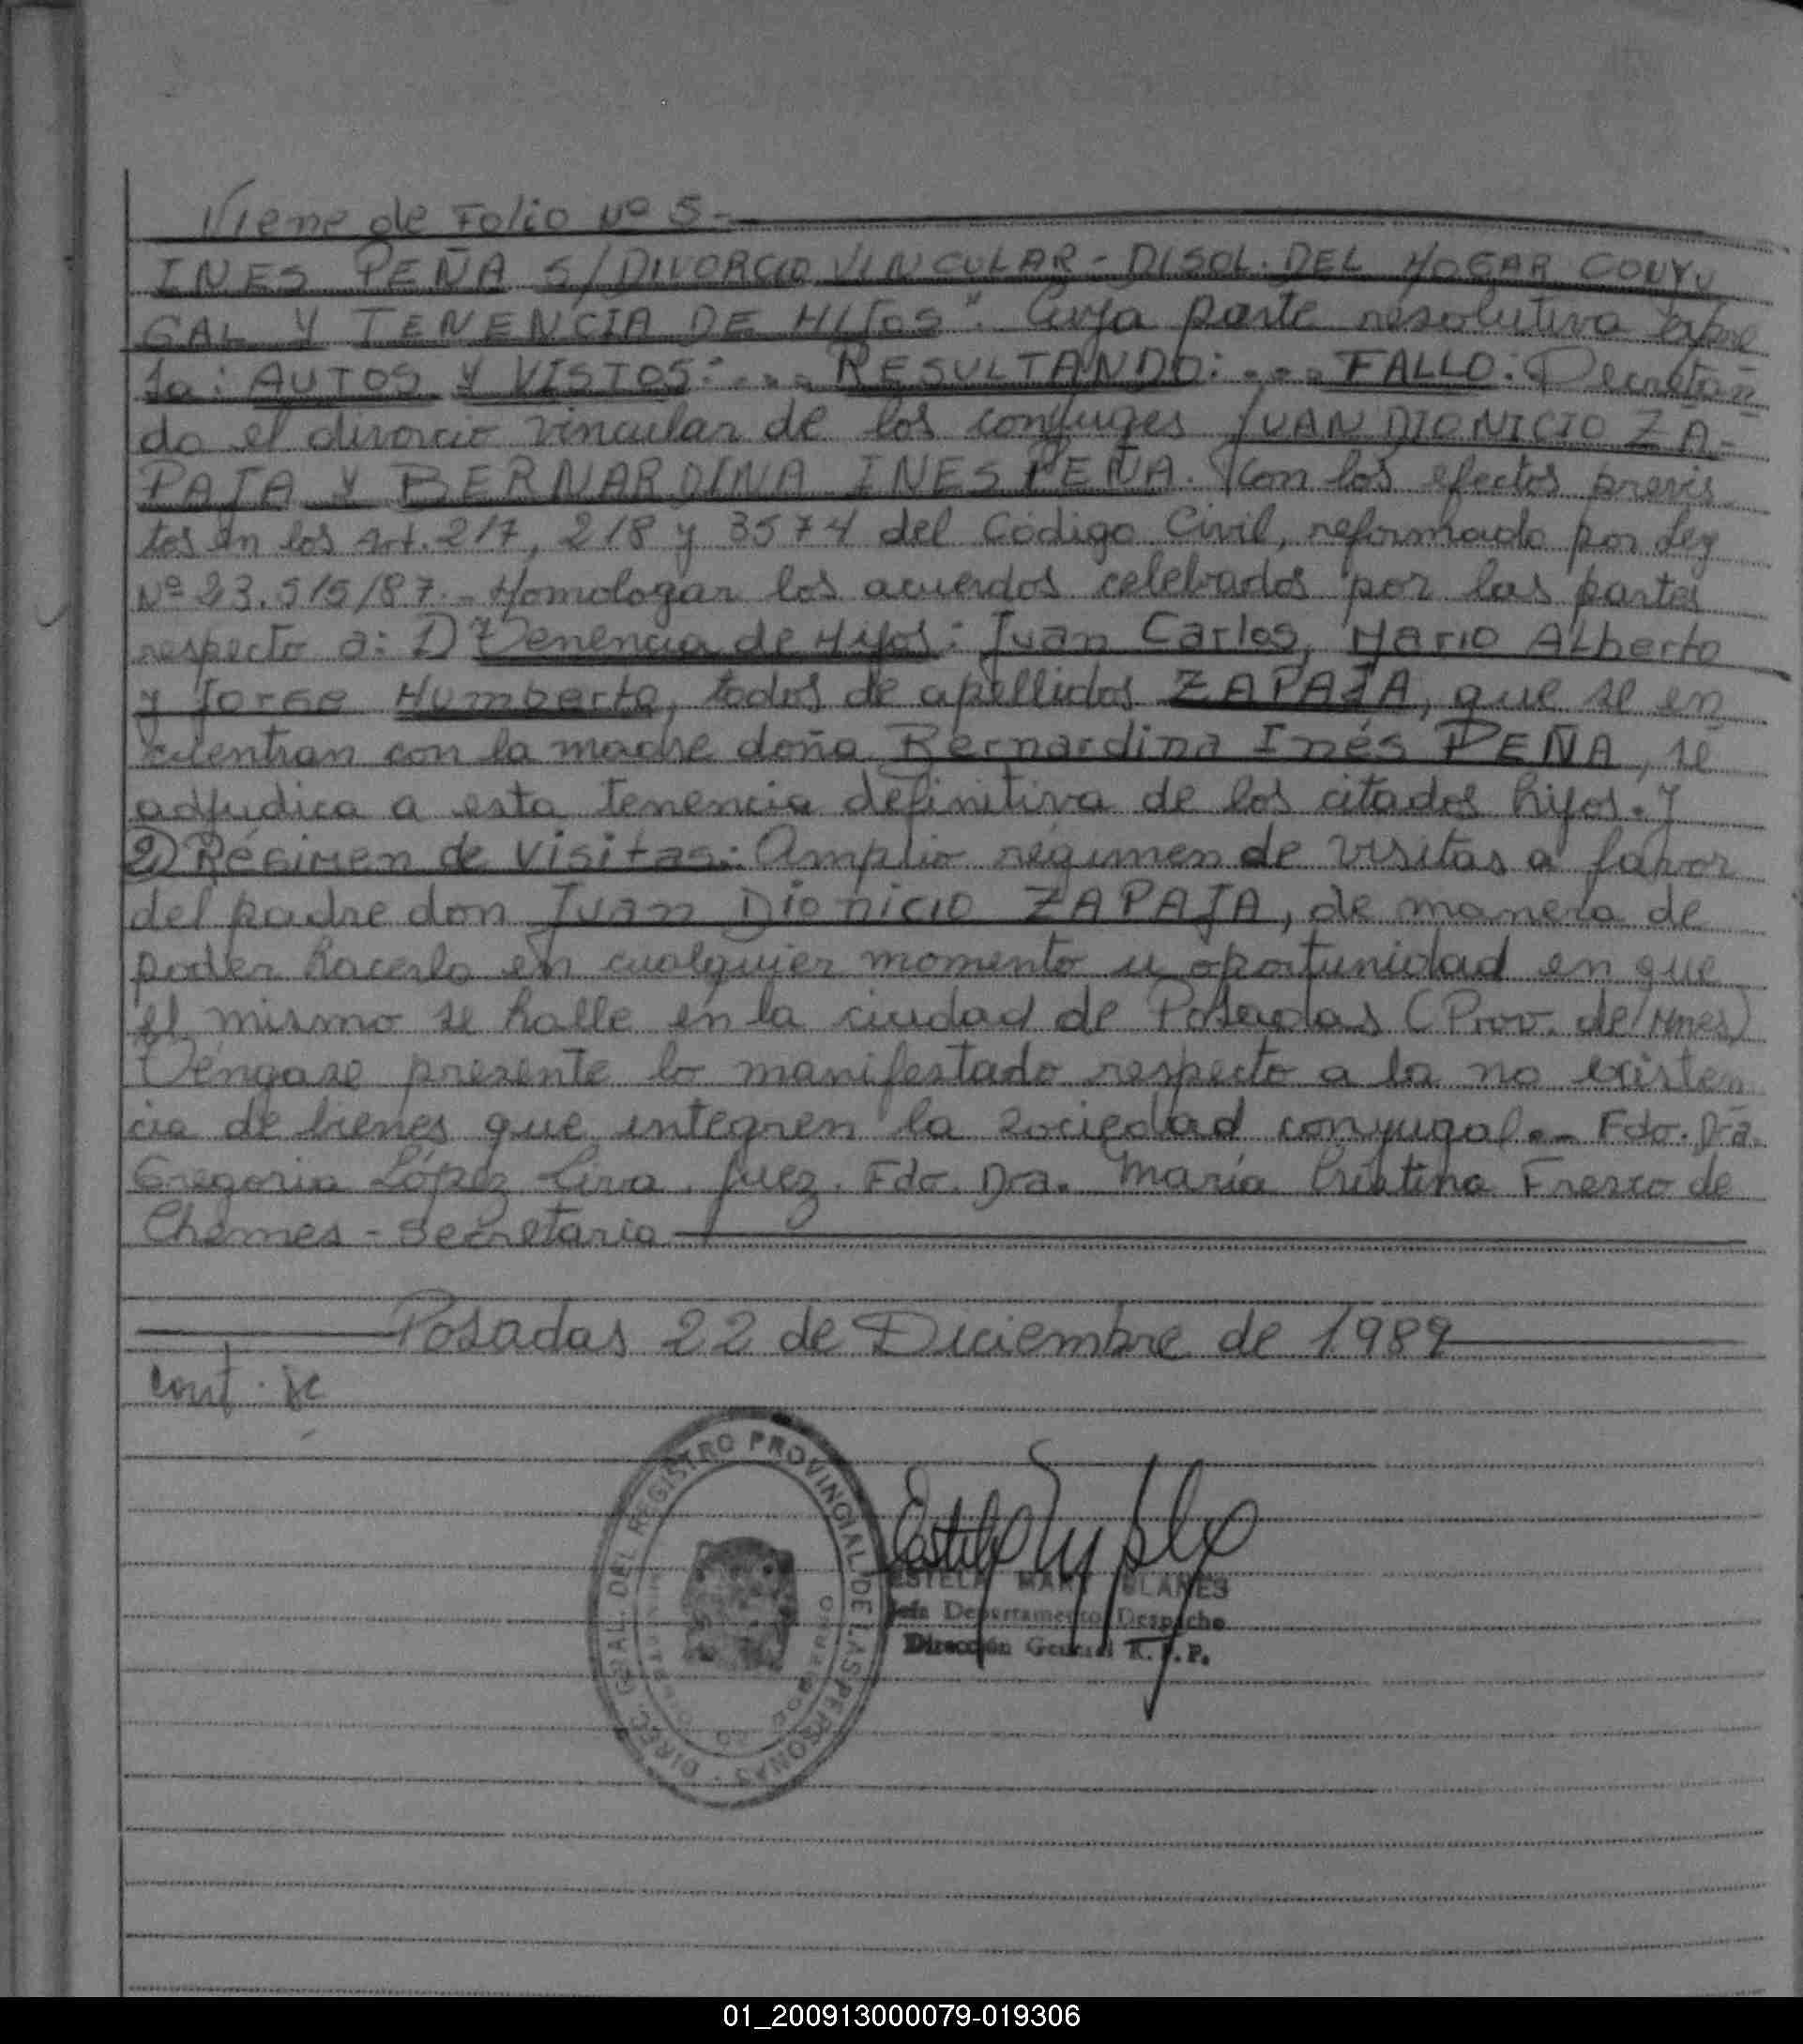 Viene de Folio Nº 5.-
INES PEÑA S/DIVORCIO VINCULAR - DISOL. DEL HOGAR CONYU
GAL Y TENENCIA DE HIJOS". Cuya parte resolutiva expre
sa: AUTOS Y VISTOS:.... RESULTANDO:.... FALLO: Decretan
do el divorcio vincular de los conyuges JUAN DIONICIO ZA-
PAJA Y BERNARDINA INES PEÑA. Con los efectos previs
tos en los Art. 217, 218 y 3574 del Código Civil, reformado por Ley
Nº 23.515/87.- Homologar los acuerdos celebrados por las partes
respecto a: 1) Tenencia de Hijos: Juan Carlos, Mario Alberto
y Jorge Humberto, todos de apellidos ZAPAJA, que se en
cuentran con la madre doña Bernardina Inés PEÑA, se
adjudica a esta tenencia definitiva de los citados hijos. Y
2) Régimen de visitas: Amplio régimen de visitas a favor
del padre don Juan Dionicio ZAPAJA, de manera de
poder hacerlo en cualquier momento u oportunidad en que
el mismo se halle en la ciudad de Posadas (Prov. de Mnes)
Téngase presente lo manifestado respecto a la no existen
cia de bienes que integren la sociedad conyugal.- Fdo. Dra.
Gregoria López Lira. Juez. Fdo. Dra. María Cristina Fresco de
Chemes - Secretaria
Posadas 22 de Diciembre de 1989
DIREC. GRAL. DEL REGISTRO PROVINCIAL DE LAS PERSONAS
ESTELA BLANES
Jefa Departamento Despacho
Dirección General R.P.P.
01_200913000079-019306